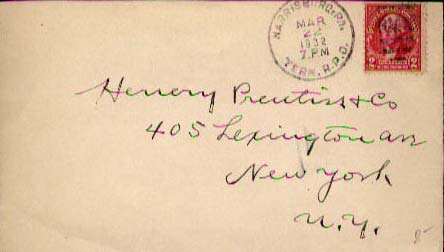 HARRISBURG, PA.
MAR
22
1932
7 PM
TERM. R.P.O.
2 2
Henery Prentiss & Co
405 Lexington ave
New York
N.Y.